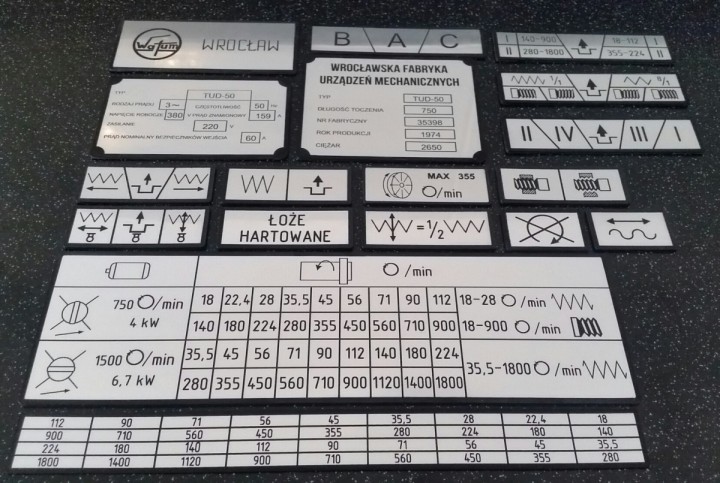 Wafum WROCŁAW
B A C
I 140-900 18-112 I
II 280-1800 355-224 II
TYP TUD-50
RODZAJ PRĄDU 3~ CZĘSTOTLIWOŚĆ 50 Hz
NAPIĘCIE ROBOCZE 380 V PRĄD ZNAMIONOWY 159 A
ZASILANIE 220 V
PRĄD NOMINALNY BEZPIECZNIKÓW WEJŚCIA 60 A
WROCŁAWSKA FABRYKA
URZĄDZEŃ MECHANICZNYCH
TYP TUD-50
DŁUGOŚĆ TOCZENIA 750
NR FABRYCZNY 35398
ROK PRODUKCJI 1974
CIĘŻAR 2650
1/1 8/1
II IV III I
MAX 355
/min
ŁOŻE
HARTOWANE
=1/2
/min
750 /min
4 kW
18 22,4 28 35,5 45 56 71 90 112
140 180 224 280 355 450 560 710 900
18-28 /min
18-900 /min
1500 /min
6,7 kW
35,5 45 56 71 90 112 140 180 224
280 355 450 560 710 900 1120 1400 1800
35,5-1800 /min
112 90 71 56 45 35,5 28 22,4 18
900 710 560 450 355 280 224 180 140
224 180 140 112 90 71 56 45 35,5
1800 1400 1120 900 710 560 450 355 280